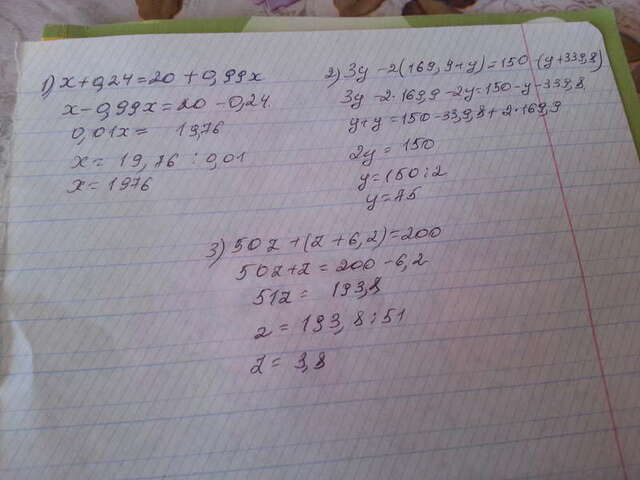 1) x+0,24=20+0,99x
x-0,99x=20-0,24
0,01x= 19,76
x= 19,76 : 0,01
x= 1976
2) 3y-2(169,9+y)=150-(y+339,8)
3y-2·169,9-2y=150-y-339,8
y+y=150-339,8+2·169,9
2y= 150
y=150:2
y=75
3) 50z+(z+6,2)=200
50z+z=200-6,2
51z= 193,8
z=193,8:51
z= 3,8